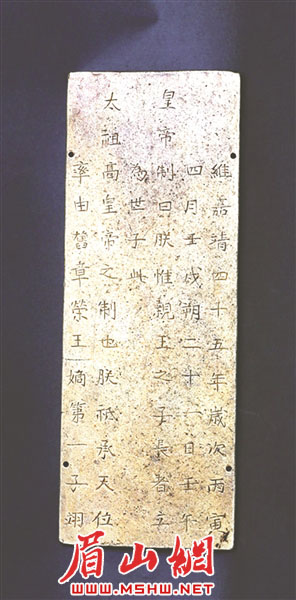 維嘉靖四十五年歲次丙寅
四月壬戌朔二十一日壬午
皇帝制曰朕惟親王之子長者立
為世子此
太祖高皇帝之制也朕祗承天位
率由舊章榮王嫡第一子翊
眉山網
WWW.MSHW.NET